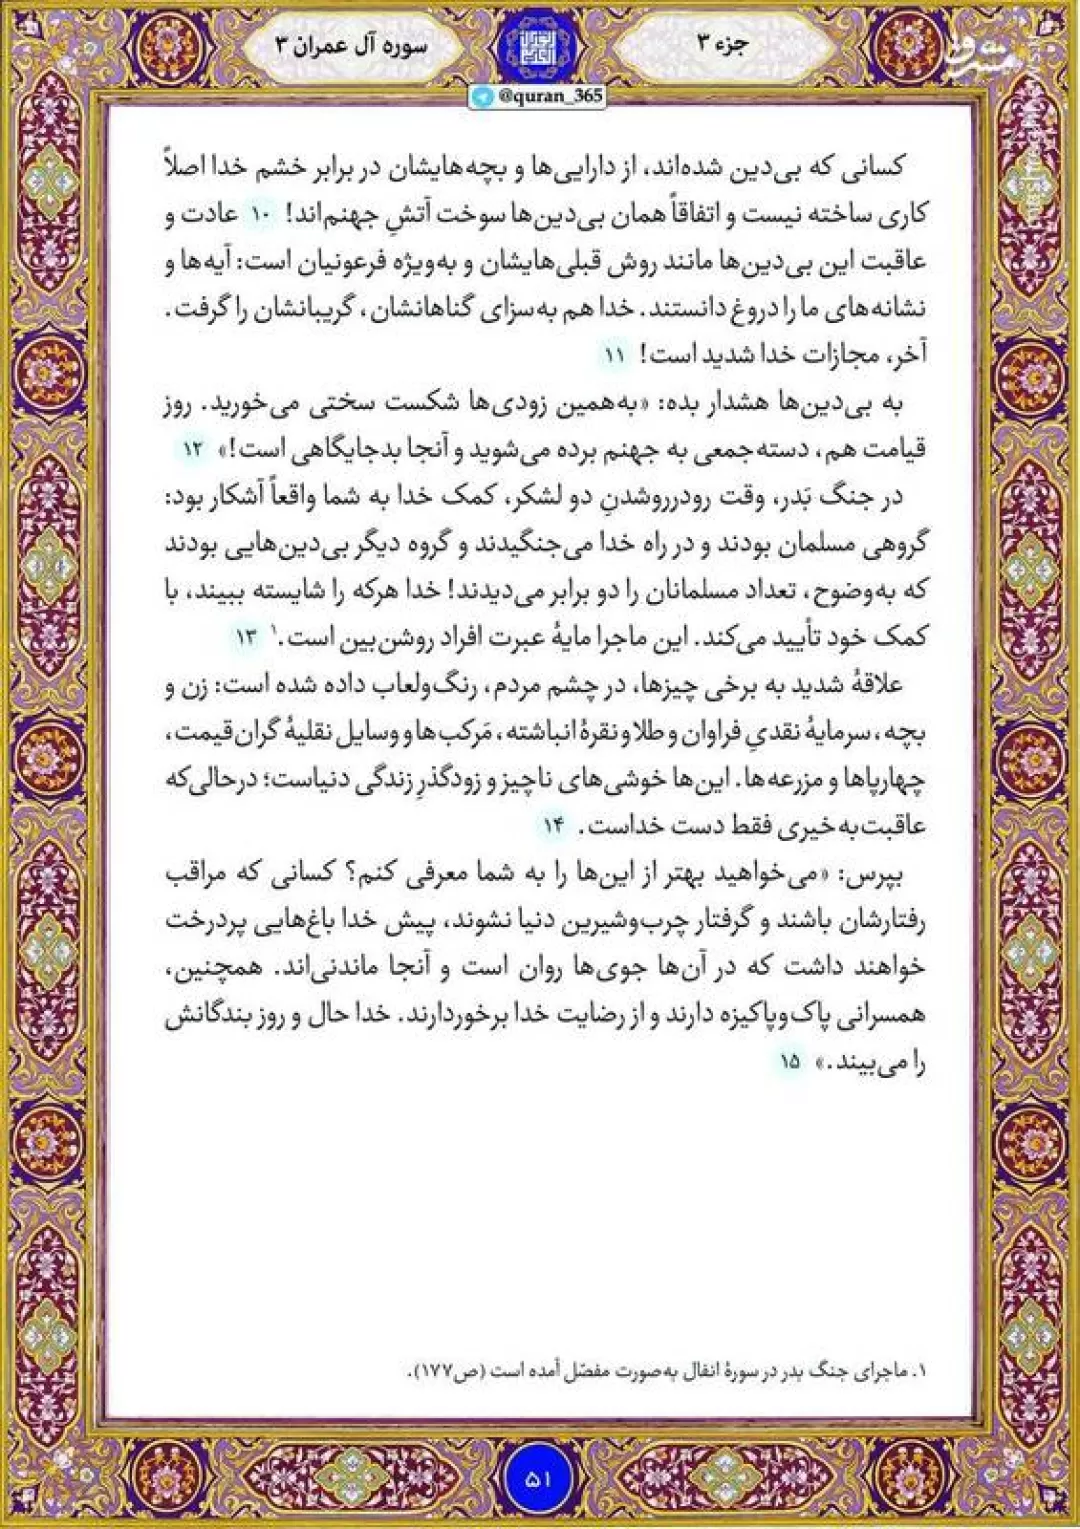 جزء ۳
سوره آل عمران ۳
مشرق
@quran_365
کسانی که بی‌دین شده‌اند، از دارایی‌ها و بچه‌هایشان در برابر خشم خدا اصلاً
کاری ساخته نیست و اتفاقاً همان بی‌دین‌ها سوخت آتشِ جهنم‌اند! ۱۰ عادت و
عاقبت این بی‌دین‌ها مانند روش قبلی‌هایشان و به‌ویژه فرعونیان است: آیه‌ها و
نشانه‌های ما را دروغ دانستند. خدا هم به‌سزای گناهانشان، گریبانشان را گرفت.
آخر، مجازات خدا شدید است! ۱۱
به بی‌دین‌ها هشدار بده: «به‌همین زودی‌ها شکست سختی می‌خورید. روز
قیامت هم، دسته‌جمعی به جهنم برده می‌شوید و آنجا بدجایگاهی است!» ۱۲
در جنگ بَدر، وقت رودرروشدنِ دو لشکر، کمک خدا به شما واقعاً آشکار بود:
گروهی مسلمان بودند و در راه خدا می‌جنگیدند و گروه دیگر بی‌دین‌هایی بودند
که به‌وضوح، تعداد مسلمانان را دو برابر می‌دیدند! خدا هرکه را شایسته ببیند، با
کمک خود تأیید می‌کند. این ماجرا مایهٔ عبرت افراد روشن‌بین است.۱ ۱۳
علاقهٔ شدید به برخی چیزها، در چشم مردم، رنگ‌ولعاب داده شده است: زن و
بچه، سرمایهٔ نقدیِ فراوان و طلا و نقرهٔ انباشته، مَرکب‌ها و وسایل نقلیهٔ گران‌قیمت،
چهارپاها و مزرعه‌ها. این‌ها خوشی‌های ناچیز و زودگذرِ زندگی دنیاست؛ درحالی‌که
عاقبت‌به‌خیری فقط دست خداست. ۱۴
بپرس: «می‌خواهید بهتر از این‌ها را به شما معرفی کنم؟ کسانی که مراقب
رفتارشان باشند و گرفتار چرب‌وشیرین دنیا نشوند، پیش خدا باغ‌هایی پردرخت
خواهند داشت که در آن‌ها جوی‌ها روان است و آنجا ماندنی‌اند. همچنین،
همسرانی پاک‌وپاکیزه دارند و از رضایت خدا برخوردارند. خدا حال و روز بندگانش
را می‌بیند.» ۱۵
۱. ماجرای جنگ بدر در سورهٔ انفال به‌صورت مفصّل آمده است (ص۱۷۷).
۵۱